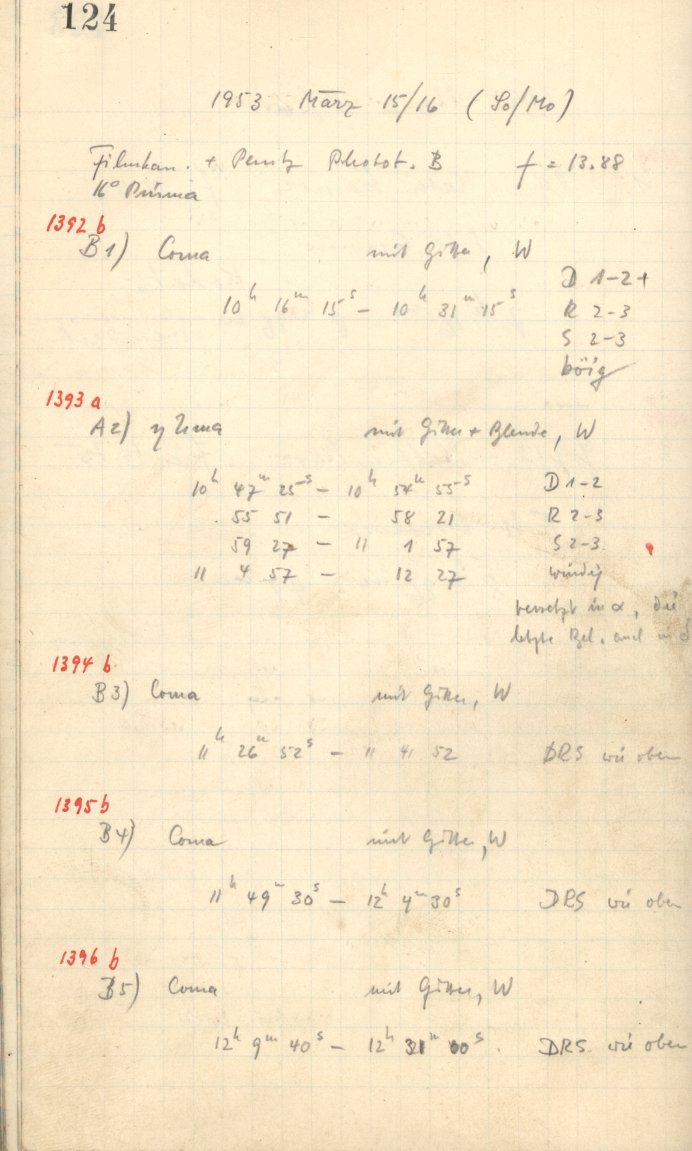 124
1953 März 15/16 (So/Mo)
Filmkam. + Photot. B f = 13.88
16° Prisma
1392 b
B1) Coma mit Gitter, W
D 1-2+
10h 16m 15s – 10h 31m 15s R 2-3
S 2-3
böig
1393 a
A2) η mit Gitter + Blende, W
10h 47m 25s – 10h 54m 55s D 1-2
55 51 – 58 21 R 2-3
59 27 – 11 1 57 S 2-3
11 4 57 – 12 27 windig
versetzt in α, die
letzte Bel. auch in δ
1394 b
B3) Coma mit Gitter, W
11h 26m 52s – 11 41 52 DRS wie oben
1395 b
B4) Coma mit Gitter, W
11h 49m 30s – 12h 4m 30s DRS wie oben
1396 b
B5) Coma mit Gitter, W
12h 9m 40s – 12h m 00s. DRS wie oben